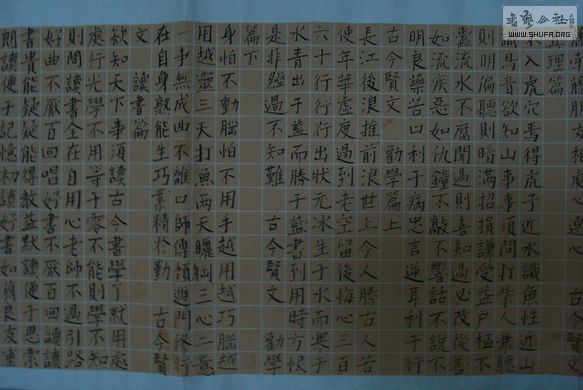 書藝公社
WWW.SHUFA.ORG
真理篇
不入虎穴焉得虎子近水識魚性近山
識鳥音欲知山事須問打柴人兼聽
則明偏聽則暗滿招損謙受益户樞不
蠹流水不腐聞過則喜知過必改從善
如流疾惡如仇鐘不敲不響話不說不
明良藥苦口利于病忠言逆耳利于行
古今賢文 勸學篇上
長江後浪推前浪世上今人勝古人若
使年華虛度過到老空留後悔心三百
六十行行行出狀元冰生于水而寒于
水青出于藍而勝于藍書到用時方恨
是非經過不知難 古今賢文 勸學
篇下
身怕不動腦怕不用手越用越巧腦越
用越靈三天打魚兩天曬網三心二意
一事無成曲不離口師傅領進門修行
在自身熟能生巧業精於勤 古今賢
文 讀書篇
欲知天下事須讀古今書學了就用處
處行光學不用等于零不能則學不知
則問讀書全在自用心老師不過引路
好曲不厭百回唱好書不厭百回讀讀
書貴能疑疑能得教益默讀便于思索
朗讀便于記憶初讀好書如獲良友重